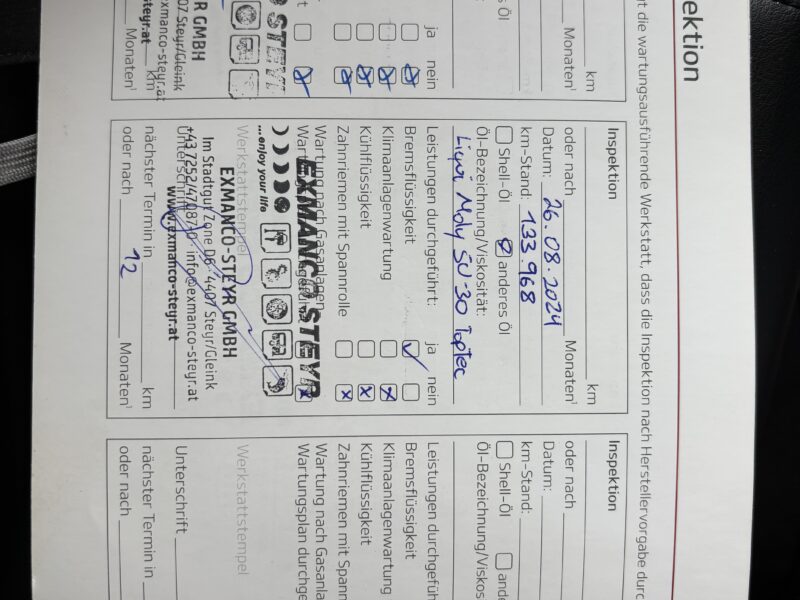 pektion
gt die wartungsausführende Werkstatt, dass die Inspektion nach Herstellervorgabe durc
km
Monaten¹
s Öl
ja nein
t
STEYR
YR GMBH
07 Steyr/Gleink
exmanco-steyr.at
o-steyr.at
km
Monaten¹
Inspektion
km
oder nach Monaten¹
Datum: 26.08.2024
km-Stand: 133.968
Shell-Öl anderes Öl
Öl-Bezeichnung/Viskosität:
Liqui Moly 5W-30 TopTec
Leistungen durchgeführt: ja nein
Bremsflüssigkeit
Klimaanlagenwartung
Kühlflüssigkeit
Zahnriemen mit Spannrolle
Wartung nach Gasanlagen
EXMANCO STEYR
...enjoy your life
Werkstattstempel
EXMANCO-STEYR GMBH
Im Stadtgut Zone D6 · 4407 Steyr/Gleink
Unterschrift
+43 7252/47087 0 info@exmanco-steyr.at
www.exmanco-steyr.at
nächster Termin in km
oder nach 12 Monaten¹
Inspektion
oder nach
Datum:
km-Stand:
Shell-Öl ande
Öl-Bezeichnung/Viskos
Leistungen durchgefüh
Bremsflüssigkeit
Klimaanlagenwartung
Kühlflüssigkeit
Zahnriemen mit Spann
Wartung nach Gasanla
Wartungsplan durchge
Werkstattstempel
Unterschrift
nächster Termin in
oder nach